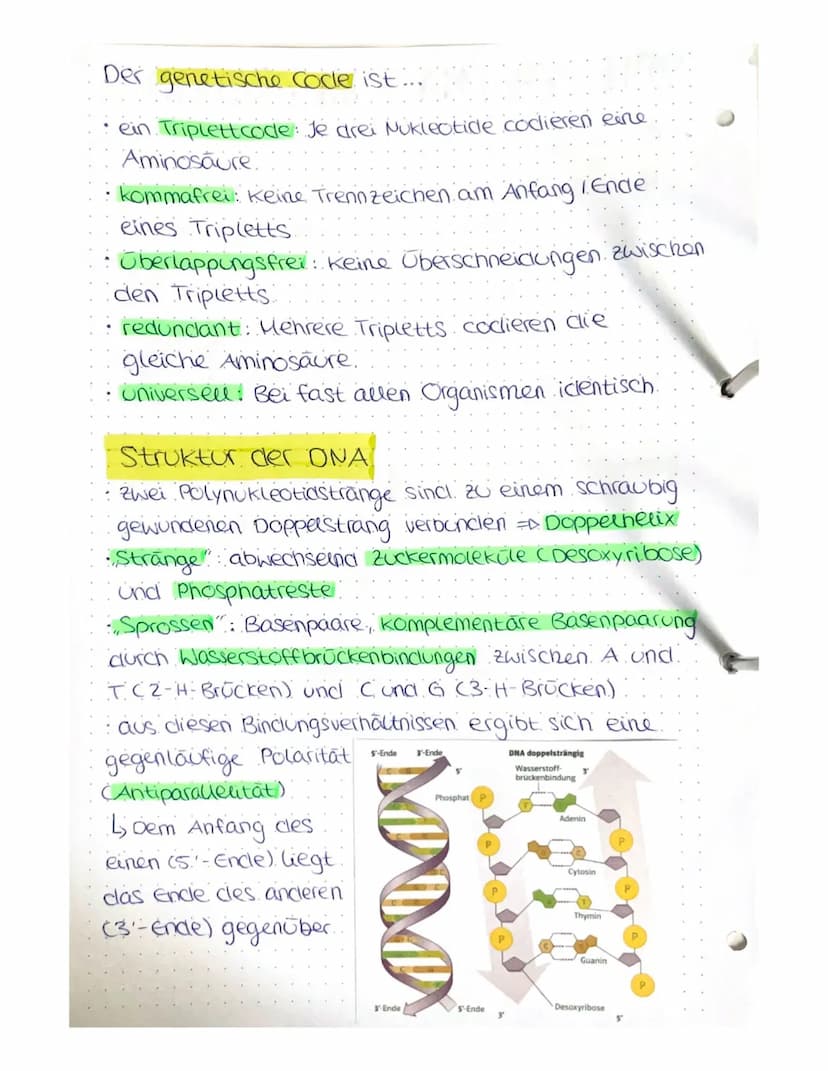 Der genetische Code ist...
· ein Triplettcode: Je drei Nukleotide codieren eine
Aminosäure.
· kommafrei: Keine Trennzeichen am Anfang / Ende
eines Tripletts
· Überlappungsfrei: Keine Überschneidungen zwischen
den Tripletts
· redundant: Mehrere Tripletts codieren die
gleiche Aminosäure.
· Universell: Bei fast allen Organismen identisch
Struktur der DNA
· Zwei Polynukleotidstränge sind zu einem schraubig
gewundenen Doppelstrang verbunden => Doppelhelix
· „Stränge": abwechselnd Zuckermoleküle (Desoxyribose)
und Phosphatreste
· „Sprossen": Basenpaare, komplementäre Basenpaarung
durch Wasserstoffbrückenbindungen zwischen A und
T (2-H-Brücken) und C und G (3-H-Brücken)
· aus diesen Bindungsverhältnissen ergibt sich eine
gegenläufige Polarität
(Antiparallelität)
↳ Dem Anfang des
einen (5'-Ende) liegt
das Ende des anderen
(3'-Ende) gegenüber.
5'-Ende 3'-Ende
DNA doppelsträngig
Wasserstoff-
brückenbindung
5' 3'
Phosphat P
T
Adenin
P P
G C
Cytosin
P P
A T
Thymin
P P
C G
Guanin
P
Desoxyribose
3'-Ende 5'-Ende
3' 5'